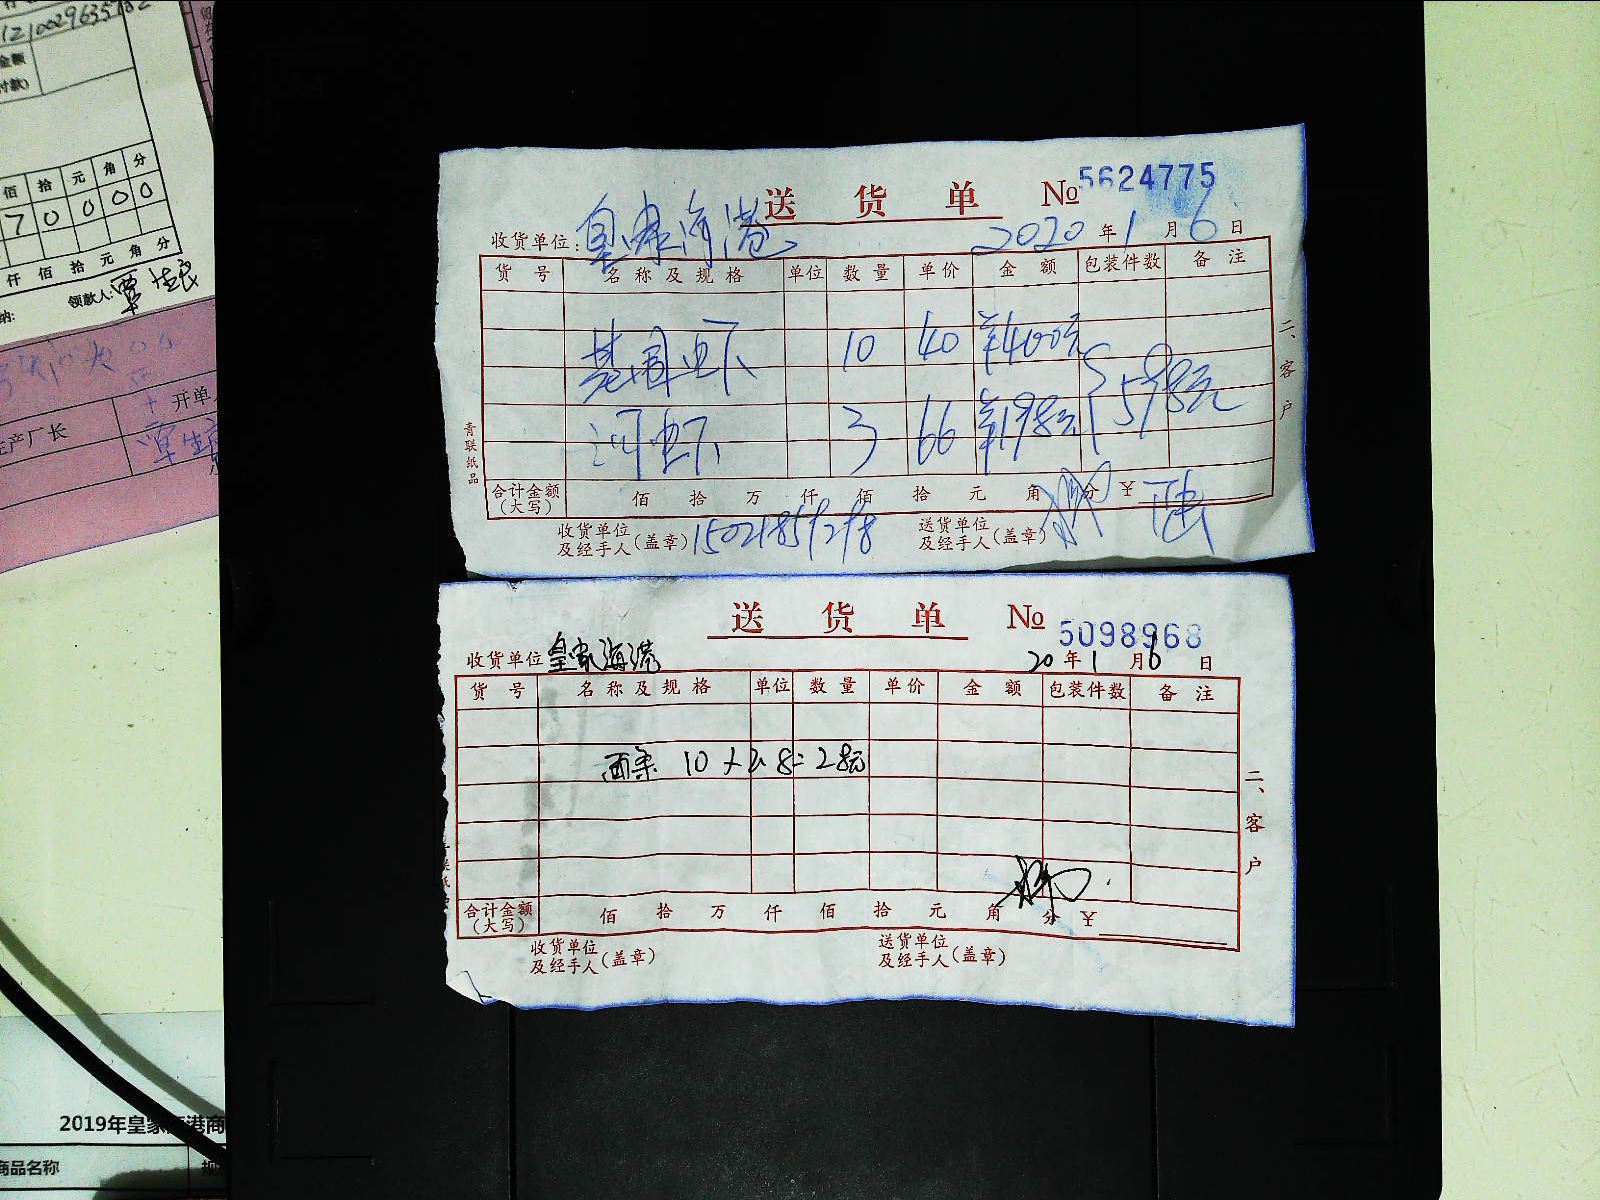 121002963
金额
付款)
佰 拾 元 角 分
7 0 0 0 0 0
仟 佰 拾 元 角 分
领款人:
纳:
开单
生产厂长
送 货 单 № 5624775
收货单位: 皇家海港 2020 年 1 月 6 日
货 号 名 称 及 规 格 单位 数 量 单价 金 额 包装件数 备 注
基围虾 10 40 ¥400元
598元
河虾 3 66 ¥198元
合计金额(大写) 佰 拾 万 仟 佰 拾 元 角 分 ¥
收货单位及经手人(盖章) 送货单位及经手人(盖章)
二、客户
青联纸品
送 货 单 № 5098968
收货单位 皇家海港 20 年 1 月 6 日
货 号 名 称 及 规 格 单位 数 量 单价 金 额 包装件数 备 注
面条 10×2.8=28元
合计金额(大写) 佰 拾 万 仟 佰 拾 元 角 分 ¥
收货单位及经手人(盖章) 送货单位及经手人(盖章)
二、客户
2019年皇家海港商
商品名称